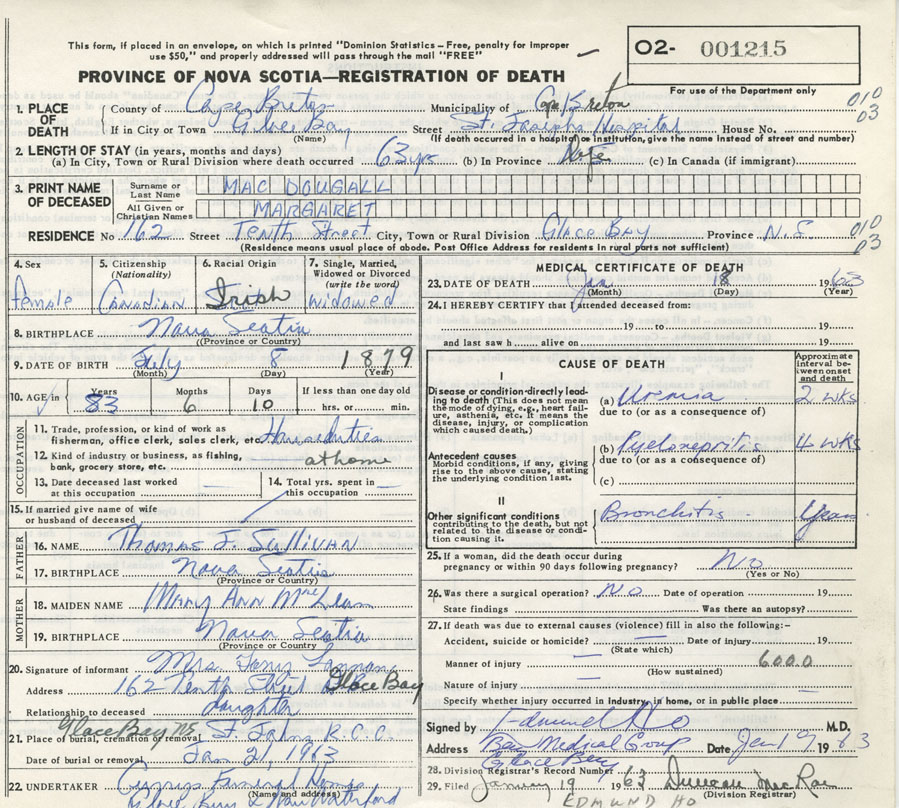 This form, if placed in an envelope, on which is printed "Dominion Statistics – Free, penalty for improper
use $50," and properly addressed will pass through the mail "FREE"
O2- 001215
PROVINCE OF NOVA SCOTIA—REGISTRATION OF DEATH
For use of the Department only
1. PLACE OF DEATH
County of Cape Breton Municipality of Cape Breton 010
If in City or Town Glace Bay Street St. Josephs Hospital House No. 03
(Name) (If death occurred in a hospital or institution, give name instead of street and number)
2. LENGTH OF STAY (in years, months and days)
(a) In City, Town or Rural Division where death occurred 63 yrs (b) In Province Life (c) In Canada (if immigrant)
3. PRINT NAME OF DECEASED
Surname or Last Name MAC DOUGALL
All Given or Christian Names MARGARET
RESIDENCE No 162 Street Tenth Street City, Town or Rural Division Glace Bay Province N.S. 010 03
(Residence means usual place of abode. Post Office Address for residents in rural parts not sufficient)
4. Sex
female
5. Citizenship (Nationality)
Canadian
6. Racial Origin
Irish
7. Single, Married, Widowed or Divorced (write the word)
widowed
8. BIRTHPLACE Nova Scotia
(Province or Country)
9. DATE OF BIRTH July 8 1879
(Month) (Day) (Year)
10. AGE in Years Months Days If less than one day old
83 6 10 hrs. or min.
OCCUPATION
11. Trade, profession, or kind of work as
fisherman, office clerk, sales clerk, etc. Houseduties
12. Kind of industry or business, as fishing,
bank, grocery store, etc. at home
13. Date deceased last worked at this occupation
14. Total yrs. spent in this occupation
15. If married give name of wife
or husband of deceased
FATHER
16. NAME Thomas J. Sullivan
17. BIRTHPLACE Nova Scotia
(Province or Country)
MOTHER
18. MAIDEN NAME Mary Ann MacLean
19. BIRTHPLACE Nova Scotia
(Province or Country)
20. Signature of informant Mrs.
Address 162 Tenth Street Glace Bay
Relationship to deceased daughter
21. Place of burial, cremation or removal Glace Bay NS St. Johns R.C.C.
Date of burial or removal Jan 21, 1963
22. UNDERTAKER Currys Funeral Home
(Name and address)
Glace Bay & New Waterford
MEDICAL CERTIFICATE OF DEATH
23. DATE OF DEATH Jan 18 1963
(Month) (Day) (Year)
24. I HEREBY CERTIFY that I attended deceased from:
19 to 19
and last saw h alive on 19
CAUSE OF DEATH
Approximate interval between onset and death
I
Disease or condition directly leading to death (This does not mean the mode of dying, e.g., heart failure, asthenia, etc. It means the disease, injury, or complication which caused death.)
(a) Uremia 2 wks
due to (or as a consequence of)
Antecedent causes
Morbid conditions, if any, giving rise to the above cause, stating the underlying condition last.
(b) Pyelonephritis 4 wks
due to (or as a consequence of)
(c)
II
Other significant conditions
contributing to the death, but not related to the disease or condition causing it.
Bronchitis Years
25. If a woman, did the death occur during
pregnancy or within 90 days following pregnancy? No
(Yes or No)
26. Was there a surgical operation? No Date of operation 19
State findings Was there an autopsy?
27. If death was due to external causes (violence) fill in also the following:-
Accident, suicide or homicide? Date of injury 19
(State which)
Manner of injury 600.0
(How sustained)
Nature of injury
Specify whether injury occurred in industry, in home, or in public place
Signed by Edmund Ho M.D.
Address Bay Medical Group Date Jan 19 1963
Glace Bay
28. Division Registrar's Record Number
29. Filed January 19 1963 Duncan MacRae
(Division Registrar)
EDMUND HO